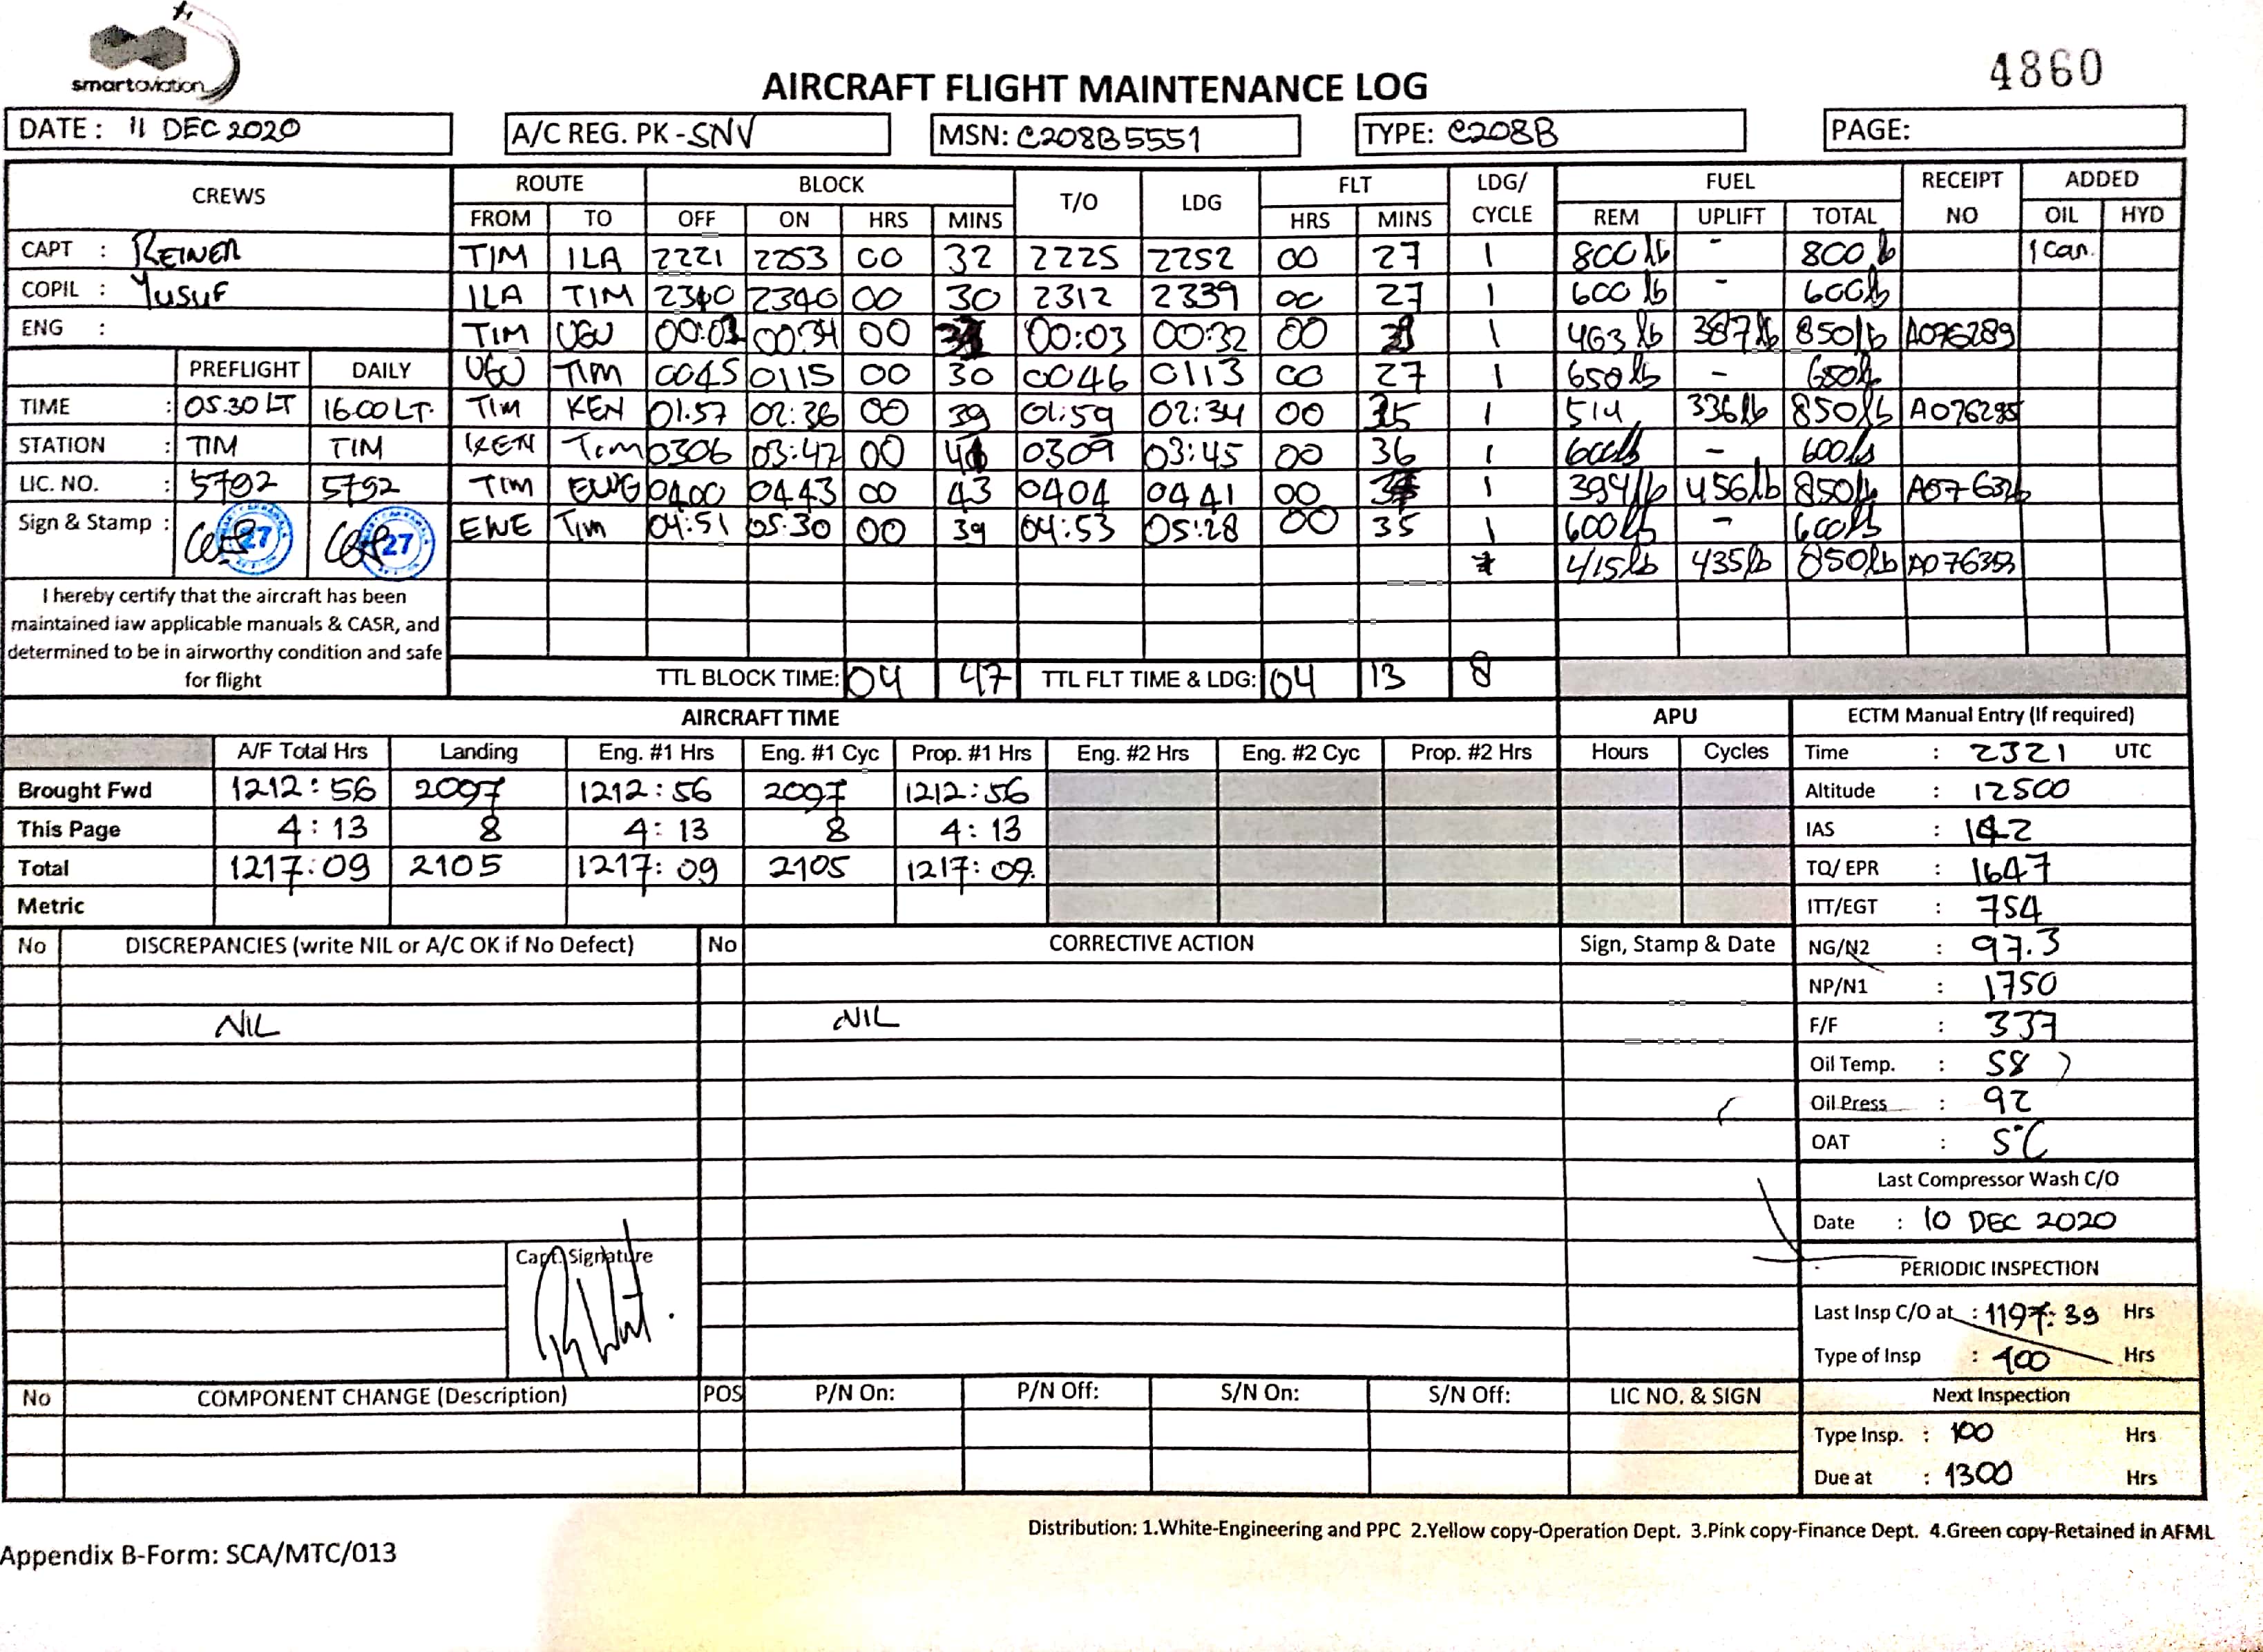 smartaviation
4860
AIRCRAFT FLIGHT MAINTENANCE LOG
DATE : 11 DEC 2020 A/C REG. PK-SNV MSN: C208B5551 TYPE: C208B PAGE:
CREWS ROUTE BLOCK T/O LDG FLT LDG/ CYCLE FUEL RECEIPT NO ADDED
FROM TO OFF ON HRS MINS HRS MINS REM UPLIFT TOTAL OIL HYD
CAPT : REINER TIM ILA 2221 2253 00 32 2225 2252 00 27 1 800 lb - 800 lb 1 can.
COPIL : YUSUF ILA TIM 2310 2340 00 30 2312 2339 00 27 1 600 lb - 600lb
ENG : TIM UGU 00:34 00 00:03 00:32 00 1 463 lb 387 lb 850 lb A076289
PREFLIGHT DAILY UGU TIM 0045 0115 00 30 0046 0113 00 27 1 650 lb - 650lb
TIME : 05.30 LT 16.00 LT. TIM KEN 01.57 02:36 00 39 01:59 02:34 00 35 1 514 336 lb 850 lb A076295
STATION : TIM TIM KEN Tim 0306 03:47 00 41 0309 03:45 00 36 1 600lb - 600lb
LIC. NO. : 5792 5792 TIM 0400 0443 00 43 0404 0441 00 1 394 lb 456 lb 850 lb
Sign & Stamp : 27 27 EWE Tim 04:51 05:30 00 39 04:53 05:28 00 35 1 600 lb - 600lb
415 lb 435 lb 850 lb A076353
I hereby certify that the aircraft has been
maintained iaw applicable manuals & CASR, and
determined to be in airworthy condition and safe
for flight
TTL BLOCK TIME: 04 47 TTL FLT TIME & LDG: 04 13 8
AIRCRAFT TIME APU ECTM Manual Entry (If required)
A/F Total Hrs Landing Eng. #1 Hrs Eng. #1 Cyc Prop. #1 Hrs Eng. #2 Hrs Eng. #2 Cyc Prop. #2 Hrs Hours Cycles Time : 2321 UTC
Brought Fwd 1212:56 2097 1212:56 2097 1212:56 Altitude : 12500
This Page 4:13 8 4:13 8 4:13 IAS : 142
Total 1217:09 2105 1217:09 2105 1217:09. TQ/ EPR : 1647
Metric ITT/EGT : 754
No DISCREPANCIES (write NIL or A/C OK if No Defect) No CORRECTIVE ACTION Sign, Stamp & Date NG/N2 : 97.3
NP/N1 : 1750
NIL NIL F/F : 337
Oil Temp. : 58
Oil Press : 92
OAT : 5°C
Last Compressor Wash C/O
Date : 10 DEC 2020
Capt. Signature
PERIODIC INSPECTION
Last Insp C/O at : 1197:39 Hrs
Type of Insp : 100 Hrs
No COMPONENT CHANGE (Description) POS P/N On: P/N Off: S/N On: S/N Off: LIC NO. & SIGN Next Inspection
Type Insp. : 100 Hrs
Due at : 1300 Hrs
Distribution: 1.White-Engineering and PPC 2.Yellow copy-Operation Dept. 3.Pink copy-Finance Dept. 4.Green copy-Retained in AFML
Appendix B-Form: SCA/MTC/013